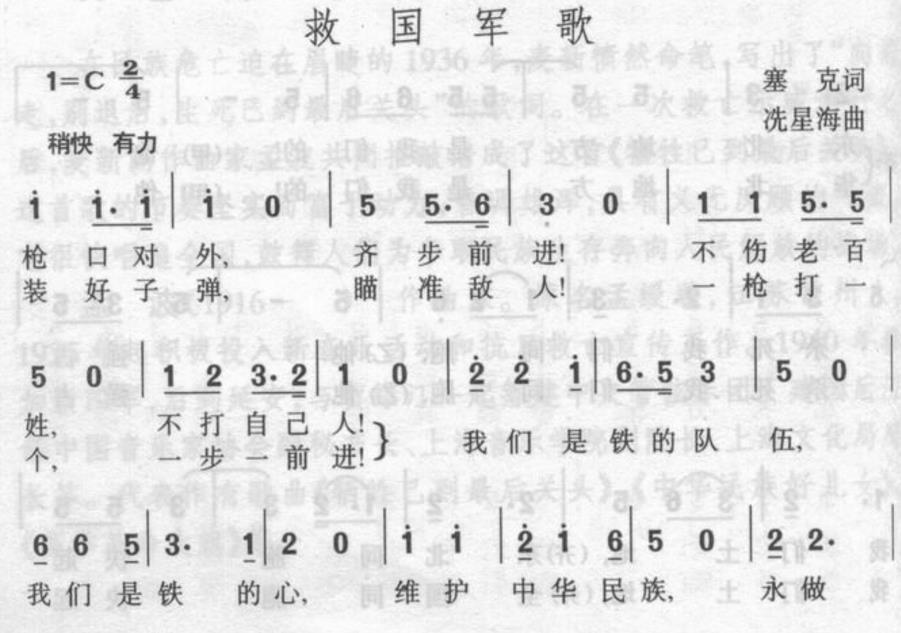 救国军歌
1=C 2/4
塞 克词
稍快 有力
冼星海曲
i i·1 | 1 0 | 5 5·6 | 3 0 | 1 1 5·5 |
枪 口 对 外, 齐 步 前 进! 不 伤 老 百
装 好 子 弹, 瞄 准 敌 人! 一 枪 打 一
5 0 | 1 2 3·2 | 1 0 | 2 2 i | 6·5 3 | 5 0 |
姓, 不 打 自 己 人! 我 们 是 铁 的 队 伍,
个, 一 步 一 前 进!
6 6 5 | 3· 1 | 2 0 | i i | 2 i 6 | 5 0 | 2 2· |
我 们 是 铁 的 心, 维 护 中 华 民 族, 永 做